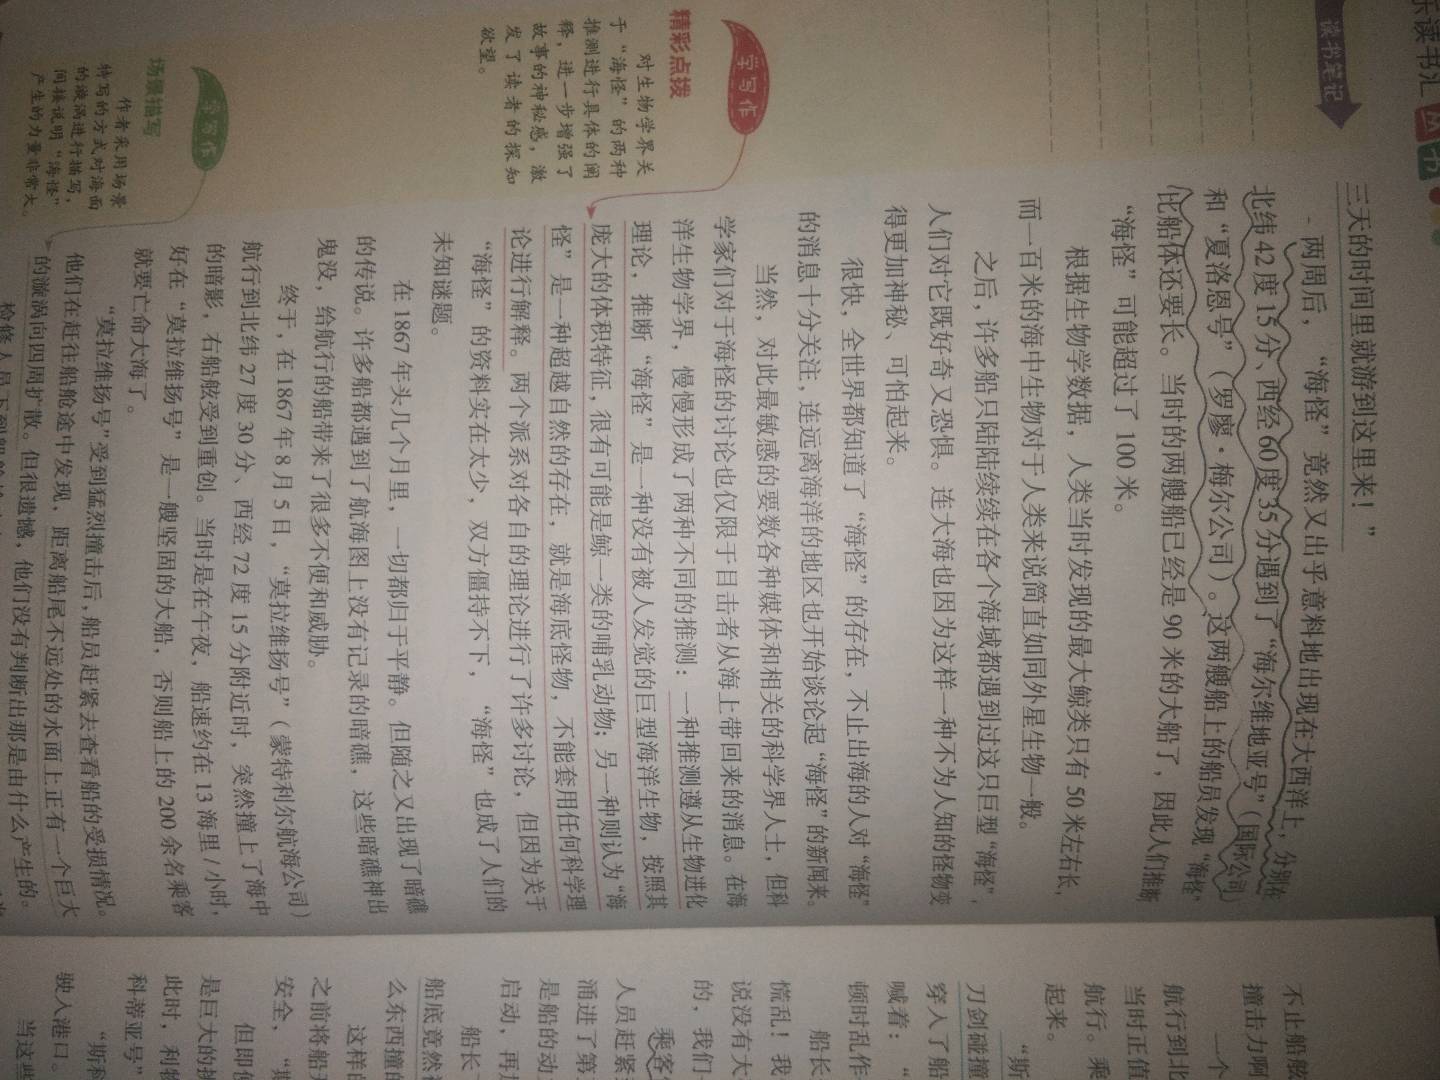 乐读书汇 丛书
读书笔记
三天的时间里就游到这里来！”
两周后，“海怪”竟然又出乎意料地出现在大西洋上，分别在
北纬 42 度 15 分、西经 60 度 35 分遇到了“海尔维地亚号”（国际公司）
和“夏洛恩号”（罗廖·梅尔公司）。这两艘船上的船员发现“海怪”
比船体还要长。当时的两艘船已经是 90 米的大船了，因此人们推断
“海怪”可能超过了 100 米。
根据生物学数据，人类当时发现的最大鲸类只有 50 米左右长，
而一百米的海中生物对于人类来说简直如同外星生物一般。
之后，许多船只陆陆续续在各个海域都遇到过这只巨型“海怪”，
人们对它既好奇又恐惧。连大海也因为这样一种不为人知的怪物变
得更加神秘、可怕起来。
很快，全世界都知道了“海怪”的存在，不止出海的人对“海怪”
的消息十分关注，连远离海洋的地区也开始谈论起“海怪”的新闻来。
当然，对此最敏感的要数各种媒体和相关的科学界人士，但科
学家们对于海怪的讨论也仅限于目击者从海上带回来的消息。在海
洋生物学界，慢慢形成了两种不同的推测：一种推测遵从生物进化
理论，推断“海怪”是一种没有被人发觉的巨型海洋生物，按照其
庞大的体积特征，很有可能是鲸一类的哺乳动物；另一种则认为“海
怪”是一种超越自然的存在，就是海底怪物，不能套用任何科学理
论进行解释。两个派系对各自的理论进行了许多讨论，但因为关于
“海怪”的资料实在太少，双方僵持不下，“海怪”也成了人们的
未知谜题。
在 1867 年头几个月里，一切都归于平静。但随之又出现了暗礁
的传说。许多船都遇到了航海图上没有记录的暗礁，这些暗礁神出
鬼没，给航行的船带来了很多不便和威胁。
终于，在 1867 年 8 月 5 日，“莫拉维扬号”（蒙特利尔航海公司）
航行到北纬 27 度 30 分、西经 72 度 15 分附近时，突然撞上了海中
的暗影，右船舷受到重创。当时是在午夜，船速约在 13 海里 / 小时，
好在“莫拉维扬号”是一艘坚固的大船，否则船上的 200 余名乘客
就要亡命大海了。
“莫拉维扬号”受到猛烈撞击后，船员赶紧去查看船的受损情况。
他们在赶往船舱途中发现，距离船尾不远处的水面上正有一个巨大
的漩涡向四周扩散。但很遗憾，他们没有判断出那是由什么产生的。
检修人员下到船舱
学写作
精彩点拨
对生物学界关
于“海怪”的两种
推测进行具体的阐
释，进一步增强了
故事的神秘感，激
发了读者的探知
欲望。
学写作
场景描写
作者采用场景
特写的方式对海面
的漩涡进行描写，
间接说明“海怪”
产生的力量非常大。
不止船舷
撞击力啊
一个
航行到北
当时正值
航行。乘
起来。
“斯
刀剑碰撞
穿入了船
喊着：“
顿时乱作
船长
慌乱！我
说没有大
的，我们
乘客
人员赶紧
涌进了第
是船的动
启动，再
船长
船底竟然
么东西撞
这样
之前将船
安全，“斯
但即使
是巨大的
此时，利物
科蒂亚号”
“斯科
驶入港口。
当这些